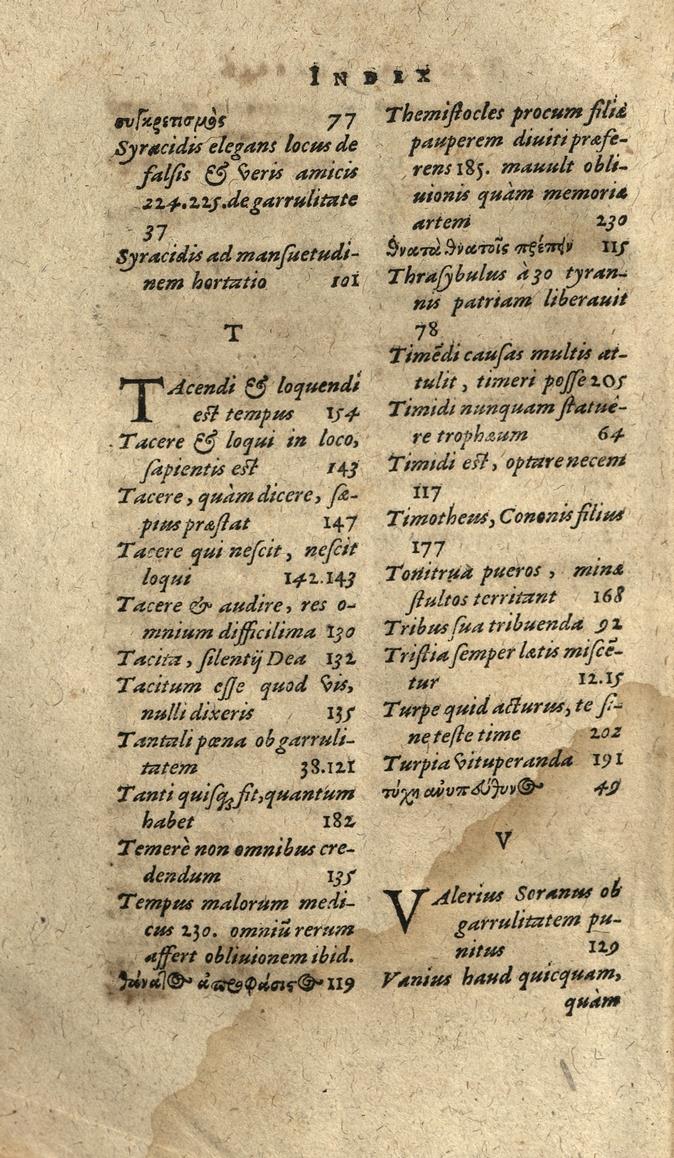 INDEX
συγκρητισμὸς 77
Syracidis elegans locus de
falſis & veris amicis
224.225. de garrulitate
37
Syracidis ad manſuetudi-
nem hortatio 101
T
TAcendi & loquendi
est tempus 154
Tacere & loqui in loco,
ſapientis est 143
Tacere, quàm dicere, ſæ-
pius præſtat 147
Tacere qui neſcit, neſcit
loqui 142.143
Tacere & audire, res o-
mnium difficilima 130
Tacita, ſilentij Dea 132
Tacitum eſſe quod vis,
nulli dixeris 135
Tantali pœna ob garruli-
tatem 38.121
Tanti quiſq; fit, quantum
habet 182
Temerè non omnibus cre-
dendum 135
Tempus malorum medi-
cus 230. omniū rerum
affert obliuionem ibid.
θάνατος ἀπροφάσιστος 119
Themiſtocles procum filiæ
pauperem diuiti præfe-
rens 185. mauult obli-
uionis quàm memoriæ
artem 230
θνατὰ θνατοῖς πρέπει 115
Thraſybulus à 30 tyran-
nis patriam liberauit
78
Timēdi cauſas multis at-
tulit, timeri poſſe 205
Timidi nunquam ſtatuê-
re trophæum 64
Timidi est, optare necem
117
Timotheus, Cononis filius
177
Tonitrua pueros, minæ
ſtultos territant 168
Tribus ſua tribuenda 92
Triſtia ſemper lætis miſcē-
tur 12.15
Turpe quid acturus, te ſi-
ne teſte time 202
Turpia vituperanda 191
τύχη ἀνυπεύθυνος 49
V
VAlerius Soranus ob
garrulitatem pu-
nitus 129
Vanius haud quicquam,
quàm